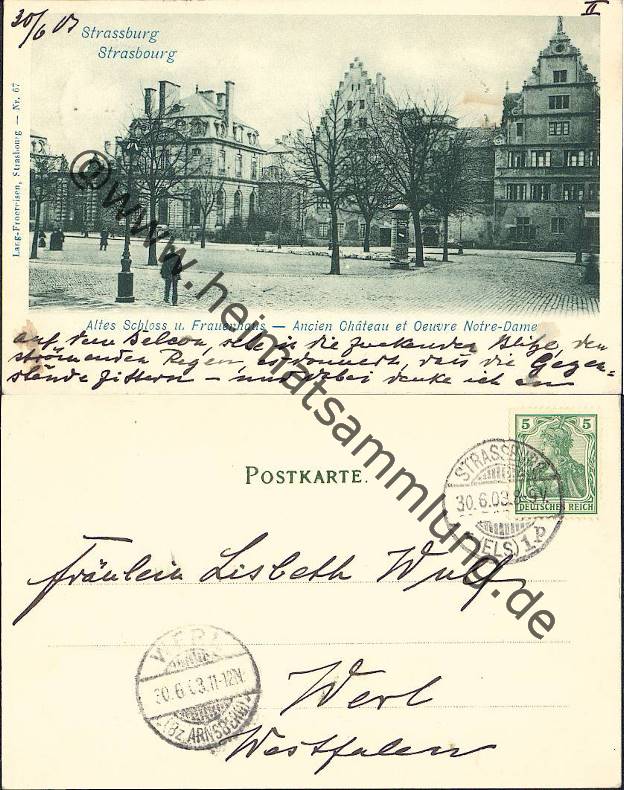 30/6 03
II
Strassburg
Strasbourg
Lang-Froereisen, Strasbourg — Nr. 67
©www.heimatsammlung.de
Altes Schloss u. Frauenhaus — Ancien Château et Oeuvre Notre-Dame
auf dem Balcon, sehe in die zuckenden Blitze, den
strömenden Regen, es donnert, dass die Gegen-
stände zittern — und dabei denke ich an
5 5
DEUTSCHES REICH
STRASSBURG
30.6.03.
(ELS) 1P
POSTKARTE.
Fräulein Lisbeth Wulf
WERL
30.6 03.11-12N
(Bz. ARNSBERG)
Werl
Westfalen